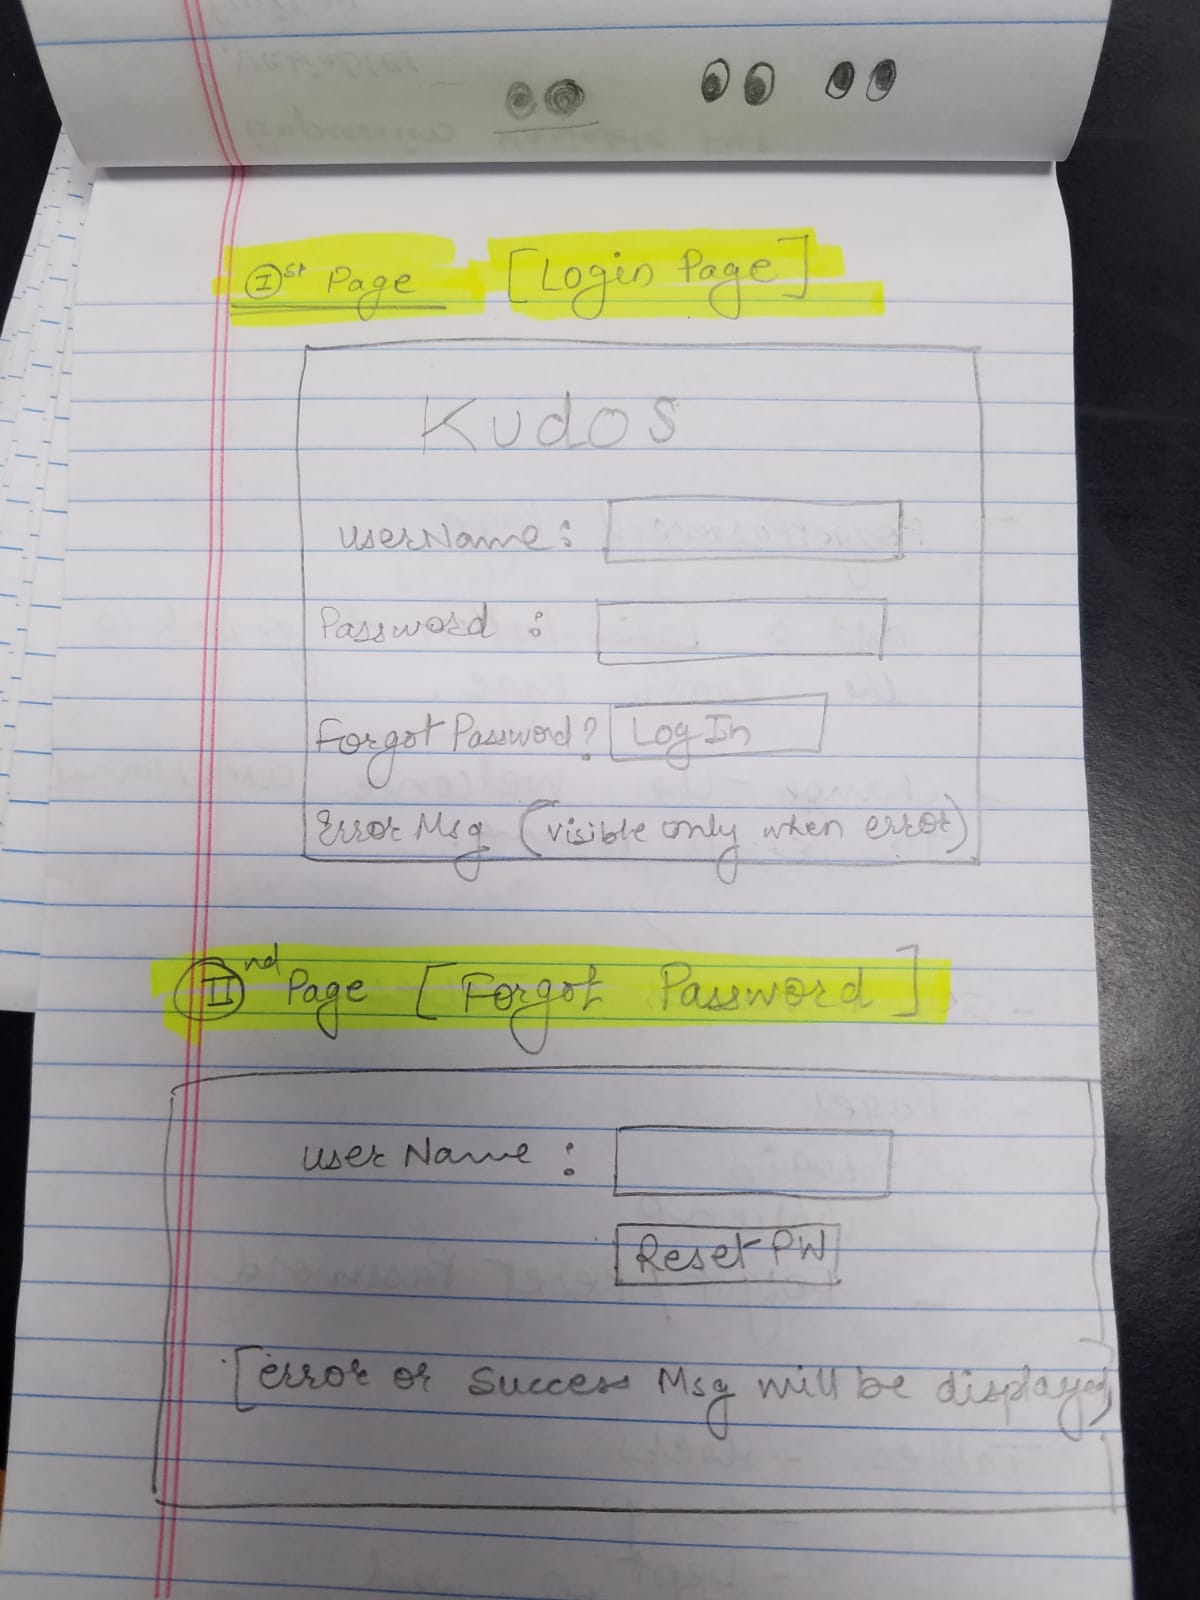 Ist Page [Login Page]
Kudos
userName:
Password :
Forgot Password? Log In
Error Msg (visible only when error)
IInd Page [Forgot Password]
user Name :
Reset PW
[error or success Msg will be displayed]